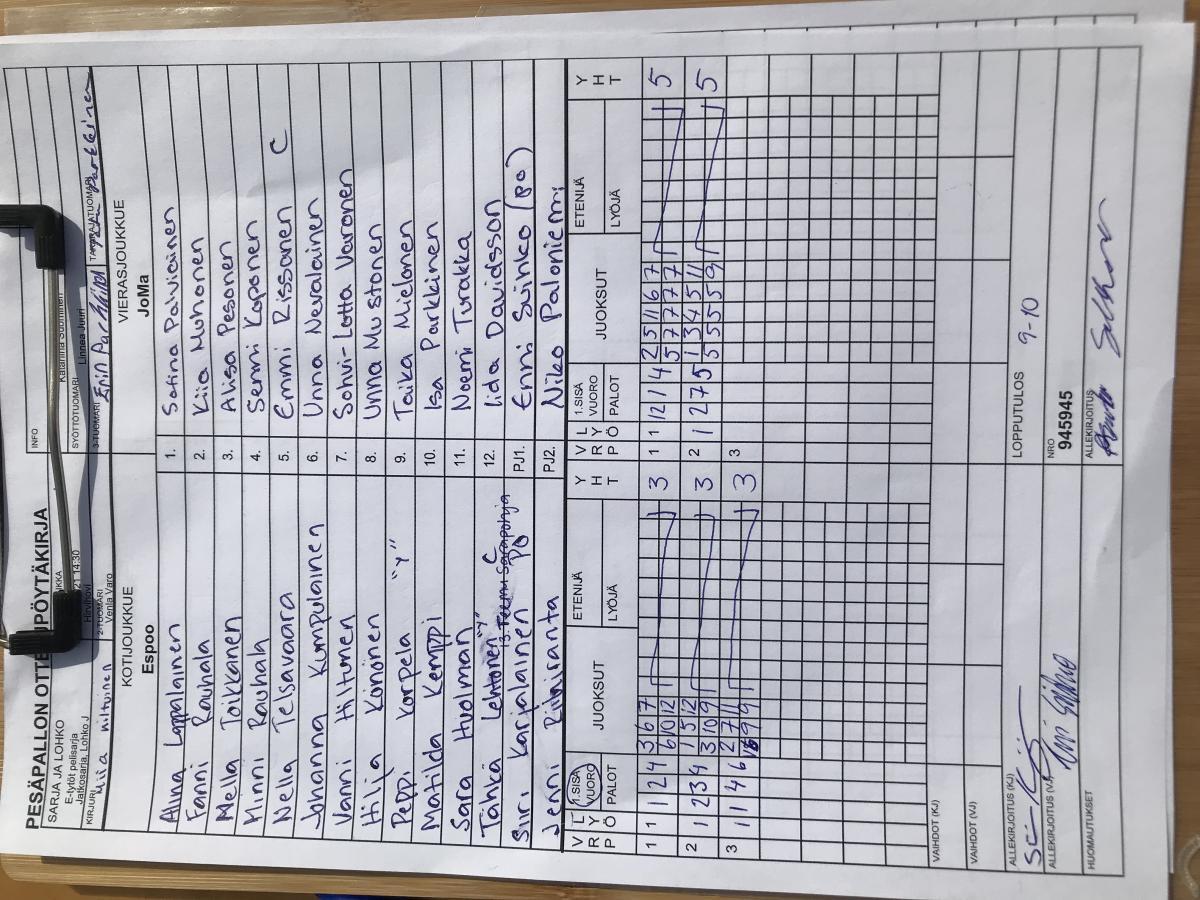 PESÄPALLON OTTELUPÖYTÄKIRJA
SARJA JA LOHKO
E-tytöt pelisarja
Jatkosarja, Lohko J
21 14:30
Hirvihovi
INFO
KIRJURI
Miia Miltunen
2-TUOMARI
Venla Varo
SYÖTTÖTUOMARI
Katariina Suominen
3-TUOMARI
Linnea Juuri
TAKARAJATUOMARI
KOTIJOUKKUE
Espoo
VIERASJOUKKUE
JoMa
Alina Lappalainen 1. Satina Palviainen
Fanni Rauhala 2. Kiia Muhonen
Mella Toikkanen 3. Alisa Pesonen
Minni Rauhala 4. Senni Koponen
Nella Telsavaara 5. Emmi Rissanen C
Johanna Kumpulainen 6. Unna Nevalainen
Vanni Hiltunen 7. Sohvi-Lotta Varonen
Hilja Könönen 8. Unna Mustonen
Peppi Korpela "Y" 9. Taika Mielonen
Matilda Kemppi 10. Isa Parkkinen
Sara Huolman 11. Noemi Turakka
Tahkä Lehtonen "Y" C 12. Iida Davidsson
13. Teemu Sarapohja
Siiri Karjalainen PÖ PJ1. Enni Suihko (pö)
Jenni Riiniranta PJ2. Niko Paloniemi
V R P L Y Ö 1.SISÄ VUORO PALOT JUOKSUT ETENIJÄ LYÖJÄ Y H T V R P L Y Ö 1.SISÄ VUORO PALOT JUOKSUT ETENIJÄ LYÖJÄ Y H T
1 1 1 2 4 3 6 7 3 1 1 12 1 4 2 5 11 6 7 5
6 10 12 5 7 7 7 7
2 1 2 3 4 1 5 12 3 2 1 2 7 5 1 3 4 5 11 5
3 10 9 5 5 5 5 9
3 1 1 4 6 2 7 11 3 3
9 9
VAIHDOT (KJ)
VAIHDOT (VJ)
ALLEKIRJOITUS (KJ)
LOPPUTULOS 9-10
ALLEKIRJOITUS (VJ)
NRO
945945
HUOMAUTUKSET
ALLEKIRJOITUS